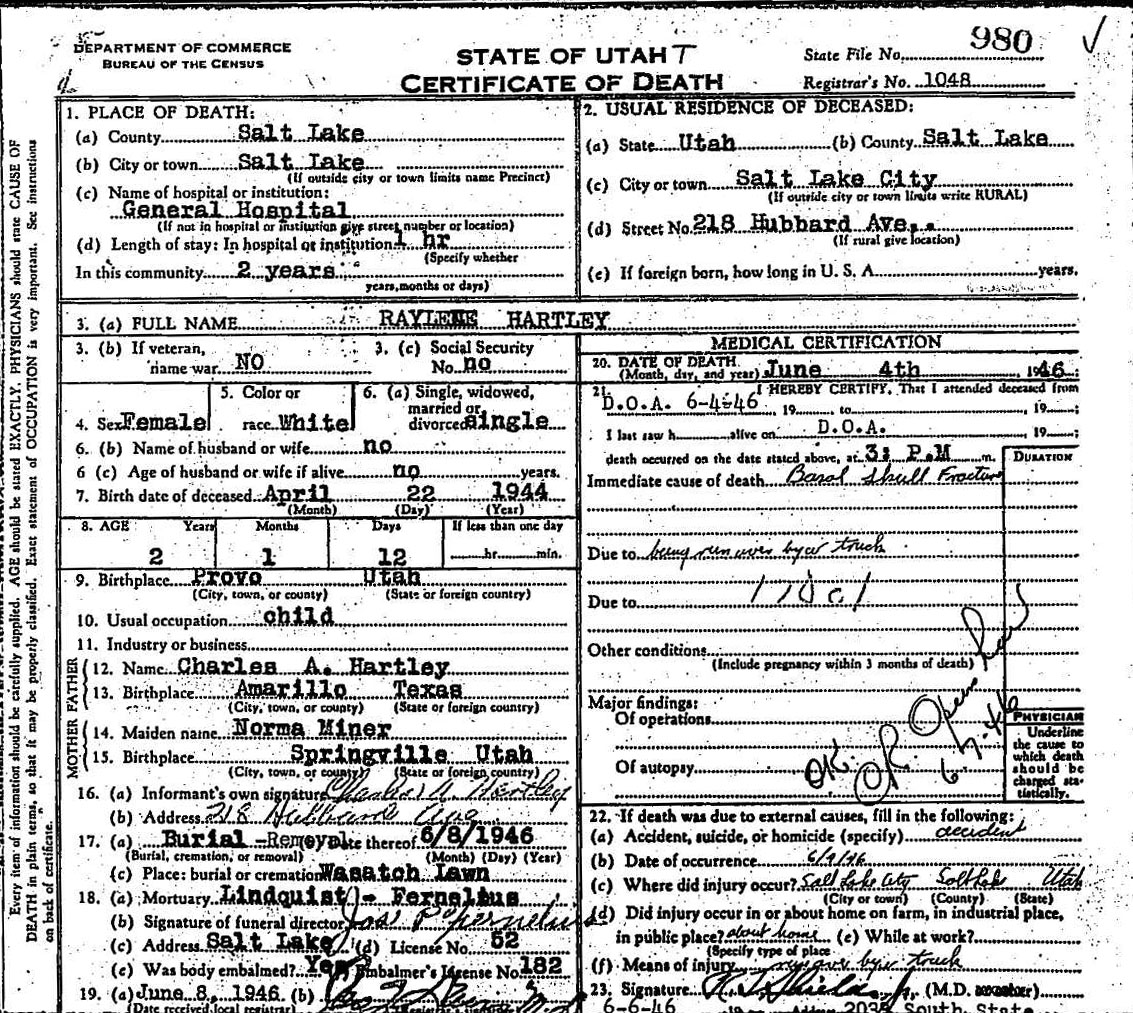 DEPARTMENT OF COMMERCE
BUREAU OF THE CENSUS
STATE OF UTAH T
CERTIFICATE OF DEATH
State File No. 980
Registrar's No. 1048
Every item of information should be carefully supplied. AGE should be stated EXACTLY. PHYSICIANS should state CAUSE OF
DEATH in plain terms, so that it may be properly classified. Exact statement of OCCUPATION is very important. See instructions
on back of certificate.
1. PLACE OF DEATH:
(a) County Salt Lake
(b) City or town Salt Lake
(If outside city or town limits name Precinct)
(c) Name of hospital or institution:
General Hospital
(If not in hospital or institution give street number or location)
(d) Length of stay: In hospital or institution 1 hr
(Specify whether
In this community 2 years
years, months or days)
2. USUAL RESIDENCE OF DECEASED:
(a) State Utah (b) County Salt Lake
(c) City or town Salt Lake City
(If outside city or town limits write RURAL)
(d) Street No. 218 Hubbard Ave.
(If rural give location)
(e) If foreign born, how long in U. S. A. years.
3. (a) FULL NAME RAYLENE HARTLEY
3. (b) If veteran, name war NO
3. (c) Social Security No. no
4. Sex Female
5. Color or race White
6. (a) Single, widowed, married or divorced single
6. (b) Name of husband or wife no
6 (c) Age of husband or wife if alive no years.
7. Birth date of deceased April 22 1944
(Month) (Day) (Year)
8. AGE Years Months Days If less than one day
2 1 12 hr. min.
9. Birthplace Provo Utah
(City, town, or county) (State or foreign country)
10. Usual occupation child
11. Industry or business
FATHER
12. Name Charles A. Hartley
13. Birthplace Amarillo Texas
(City, town, or county) (State or foreign country)
MOTHER
14. Maiden name Norma Miner
15. Birthplace Springville Utah
(City, town, or county) (State or foreign country)
16. (a) Informant's own signature Charles A. Hartley
(b) Address 218 Hubbard Ave
17. (a) Burial - Removal (b) Date thereof 6/8/1946
(Burial, cremation, or removal) (Month) (Day) (Year)
(c) Place: burial or cremation Wasatch Lawn
18. (a) Mortuary Lindquist - Fernelius
(b) Signature of funeral director Jos. P. Fernelius
(c) Address Salt Lake (d) License No. 52
(e) Was body embalmed? Yes (f) Embalmer's License No. 182
19. (a) June 8, 1946 (b)
(Date received local registrar)
MEDICAL CERTIFICATION
20. DATE OF DEATH
(Month, day, and year) June 4th 1946
21. I HEREBY CERTIFY, That I attended deceased from
D.O.A. 6-4-46, 19 to , 19 ;
I last saw h alive on D.O.A. , 19 ;
death occurred on the date stated above, at 3: P.M m.
DURATION
Immediate cause of death Basal Skull Fracture
Due to being run over by truck
Due to
Other conditions
(Include pregnancy within 3 months of death)
Major findings:
Of operations
Of autopsy
OK OR
6-7-46
PHYSICIAN
Underline
the cause to
which death
should be
charged sta-
tistically.
22. If death was due to external causes, fill in the following:
(a) Accident, suicide, or homicide (specify) accident
(b) Date of occurrence 6/4/46
(c) Where did injury occur? Salt Lake City Salt Lake Utah
(City or town) (County) (State)
(d) Did injury occur in or about home on farm, in industrial place,
in public place? about home (e) While at work?
(Specify type of place
(f) Means of injury run over by truck
23. Signature (M.D.
6-6-46 2035 South State